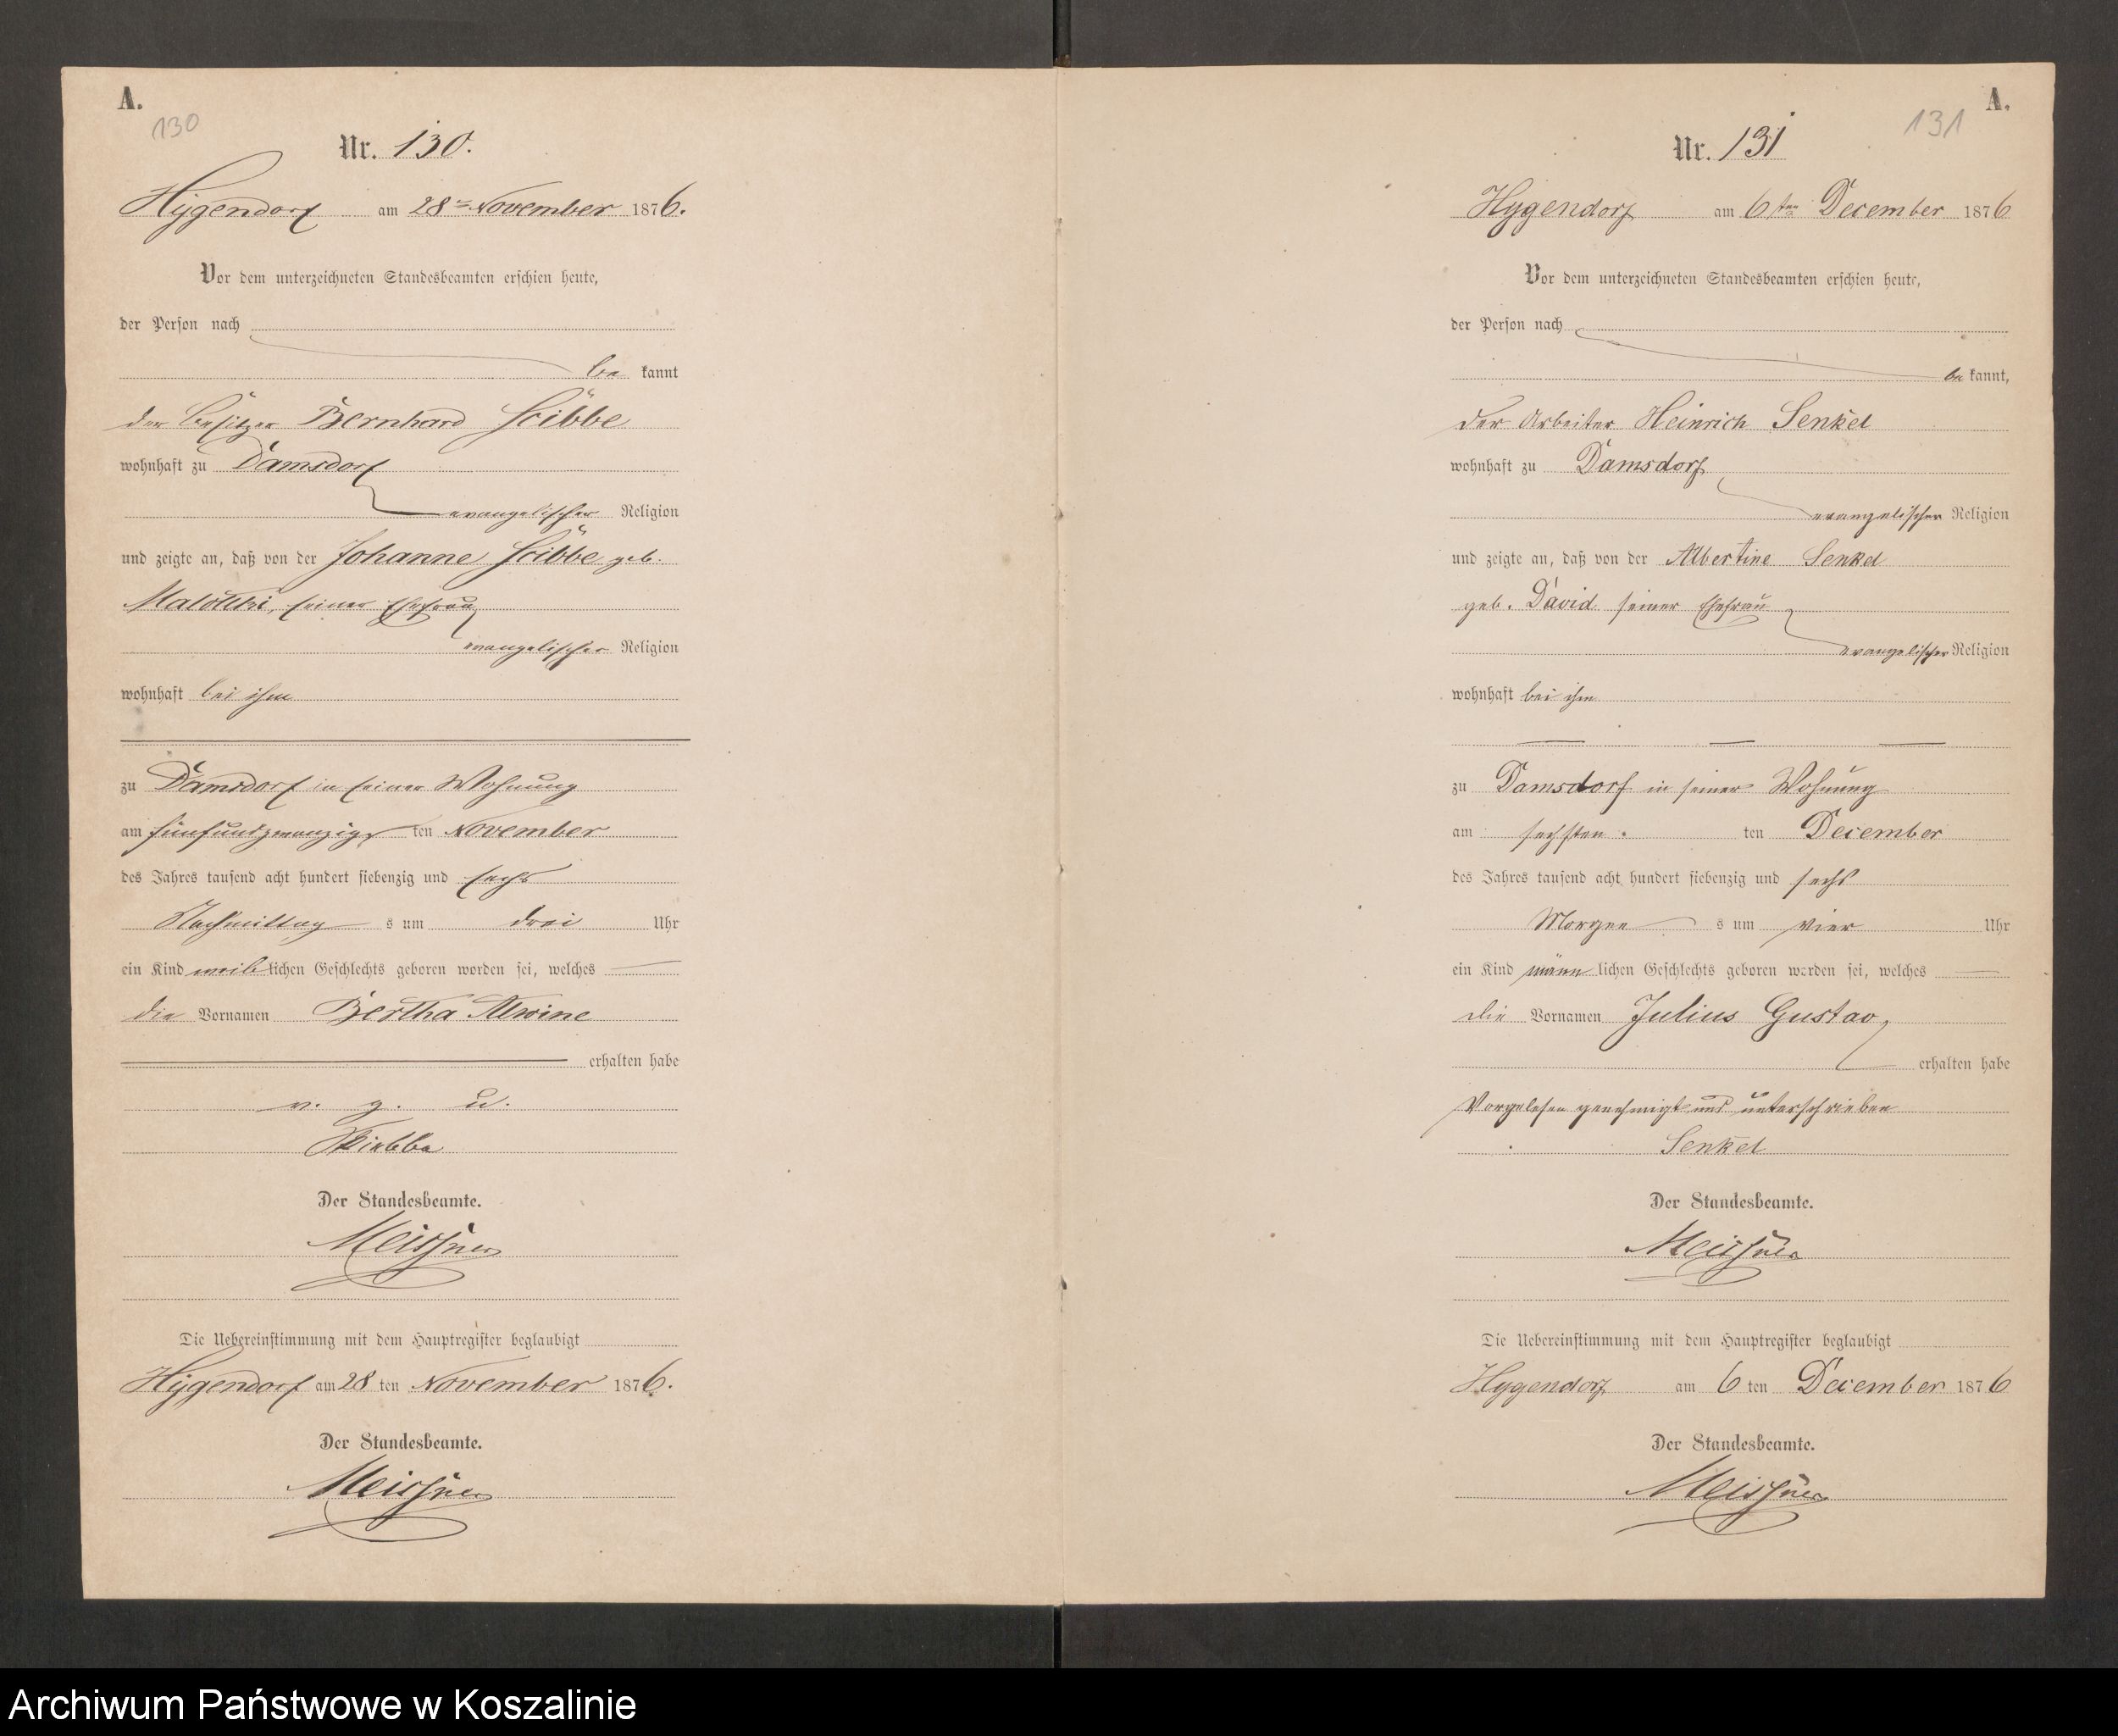 A.
130
Nr. 130.
Hygendorf am 28ten November 1876.
Vor dem unterzeichneten Standesbeamten erschien heute,
der Person nach
be kannt
der Besitzer Bernhard
wohnhaft zu Damsdorf
evangelischer Religion
und zeigte an, daß von der Johanne geb.
seiner Ehefrau
evangelischer Religion
wohnhaft bei ihm
zu Damsdorf in seiner Wohnung
am fünfundzwanzig ten November
des Jahres tausend acht hundert siebenzig und sechs
Nachmittag s um drei Uhr
ein Kind weib lichen Geschlechts geboren worden sei, welches
die Vornamen Bertha Alwine
erhalten habe
v. g. u.
Der Standesbeamte.
Meissner
Die Uebereinstimmung mit dem Hauptregister beglaubigt
Hygendorf am 28 ten November 1876.
Der Standesbeamte.
Meissner
A.
131
Nr. 131
Hygendorf am 6ten December 1876
Vor dem unterzeichneten Standesbeamten erschien heute,
der Person nach
be kannt,
der Arbeiter Heinrich Senkel
wohnhaft zu Damsdorf
evangelischer Religion
und zeigte an, daß von der Albertine Senkel
geb. David seiner Ehefrau
evangelischer Religion
wohnhaft bei ihm
zu Damsdorf in seiner Wohnung
am sechsten ten December
des Jahres tausend acht hundert siebenzig und sechs
Morgen s um vier Uhr
ein Kind männ lichen Geschlechts geboren worden sei, welches
die Vornamen Julius Gustav
erhalten habe
Vorgelesen genehmigt und unterschrieben
Senkel
Der Standesbeamte.
Meissner
Die Uebereinstimmung mit dem Hauptregister beglaubigt
Hygendorf am 6 ten December 1876
Der Standesbeamte.
Meissner
Archiwum Państwowe w Koszalinie